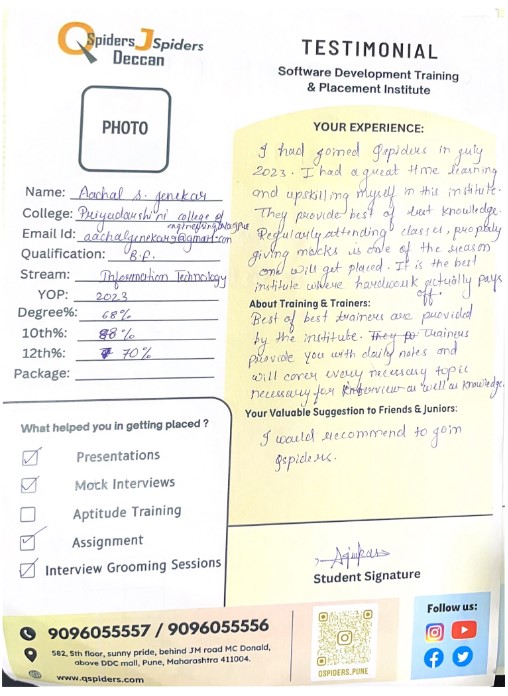 QSpiders JSpiders
Deccan
PHOTO
Name: Aachal S. Jenekar
College: Priyadarshini college of
engineering, Nagpur
Email Id: aachaljenekar9@gmail.com
Qualification: B.E.
Stream: Information Technology
YOP: 2023
Degree%: 68%
10th%: 88%
12th%: 70%
Package:
What helped you in getting placed ?
Presentations
Mock Interviews
Aptitude Training
Assignment
Interview Grooming Sessions
TESTIMONIAL
Software Development Training
& Placement Institute
YOUR EXPERIENCE:
I had joined Qspiders in july
2023. I had a great time learning
and upskilling myself in this institute.
They provide best of best knowledge.
Regularly attending classes, properly
giving mocks is one of the reason
one will get placed. It is the best
institute where hardwork actually pays
off.
About Training & Trainers:
Best of best trainers are provided
by the institute. Trainers
provide you with daily notes and
will cover every necessary topic
necessary for interview as well as knowledge.
Your Valuable Suggestion to Friends & Juniors:
I would recommend to join
Qspiders.
Student Signature
9096055557 / 9096055556
582, 5th floor, sunny pride, behind JM road MC Donald,
above DDC mall, Pune, Maharashtra 411004.
www.qspiders.com
QSPIDERS_PUNE
Follow us: